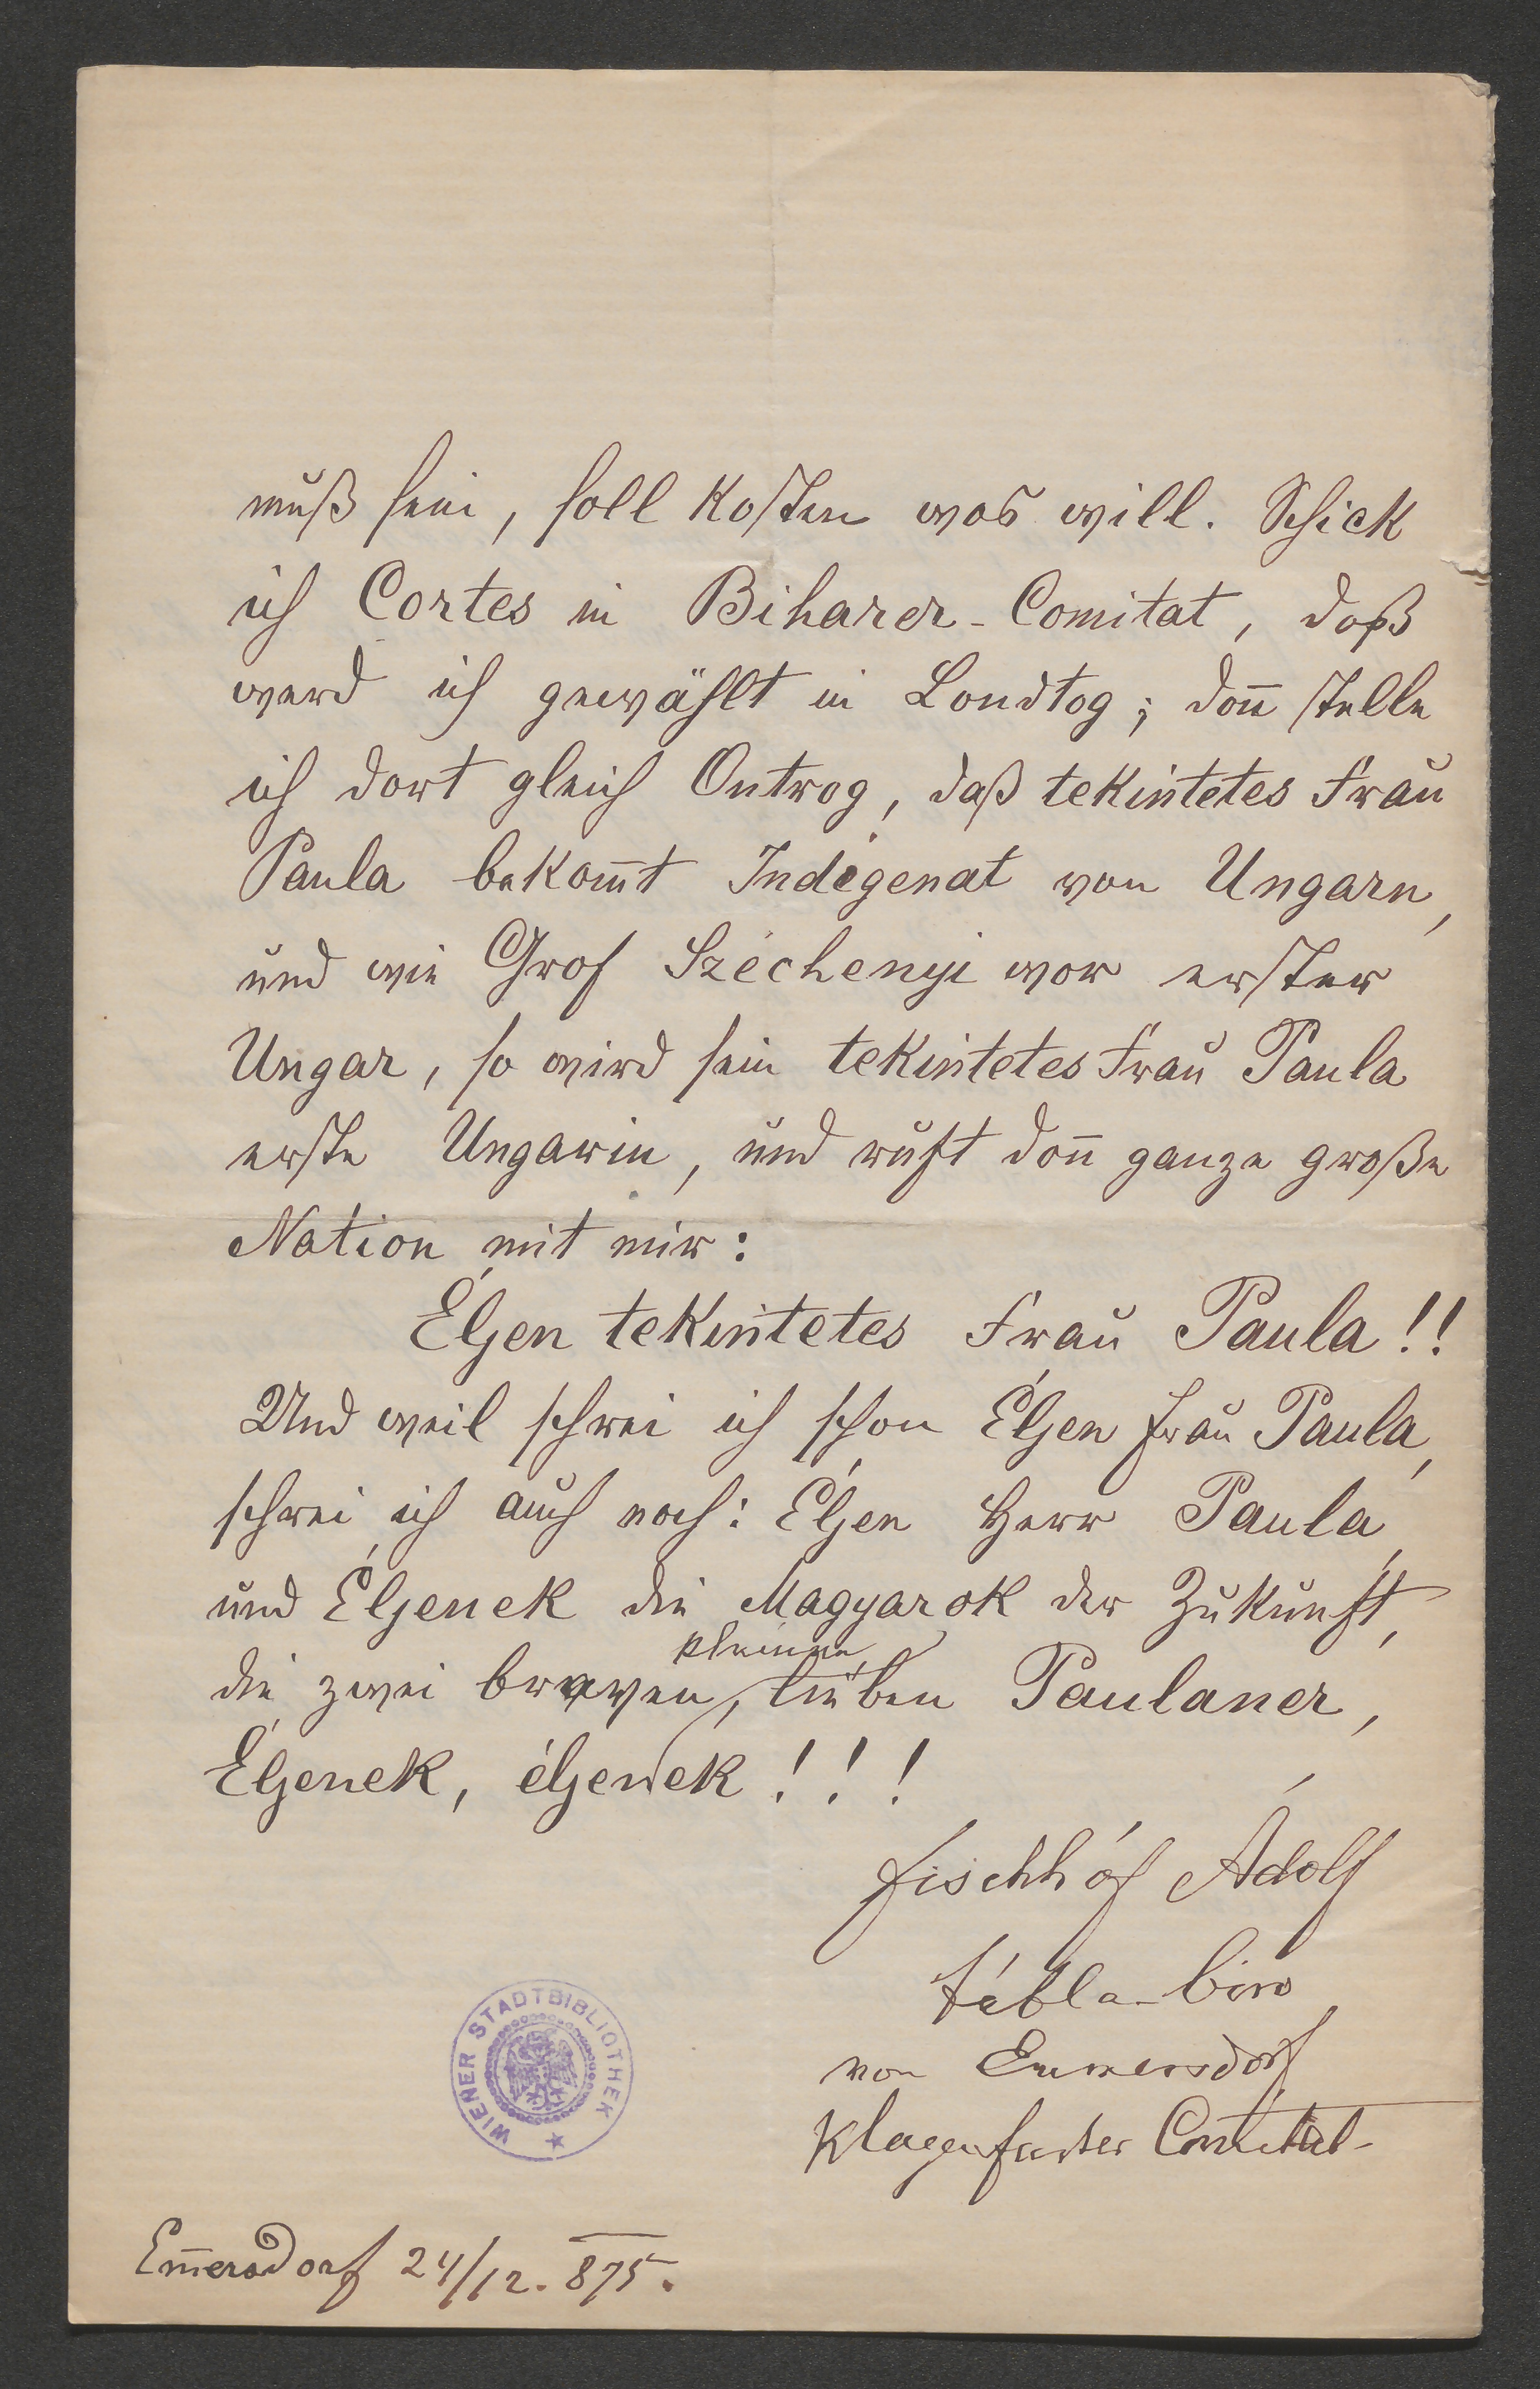 muß sein, soll kosten wos will. Schick
ich Cortes in Biharer-Comitat, doß
werd ich gewählt in Londtog; don̄ stelle
ich dort gleich Ontrog, daß tekintetes Frau
Paula bekom̄t Indigenat von Ungarn,
und wie Grof Széchenyi wor erster
Ungar, so wird sein tekintetes Frau Paula
erste Ungarin, und ruft don̄ ganze große
Nation mit mir:
Éljen tekintetes Frau Paula!!
Und weil schrei ich schon Éljen Frau Paula,
schrei ich auch noch: Éljen Herr Paula,
und Éljenek die Magyarok der Zukunft,
kleinen
die zwei braven, lieben Paulaner,
Éljenek, éljenek!!!
Fischhóf Ádolf
tábla-biro
von Emmersdorf
Klagenfurter Comitat
WIENER STADTBIBLIOTHEK
Em̄ersdorf 24/12. 875.